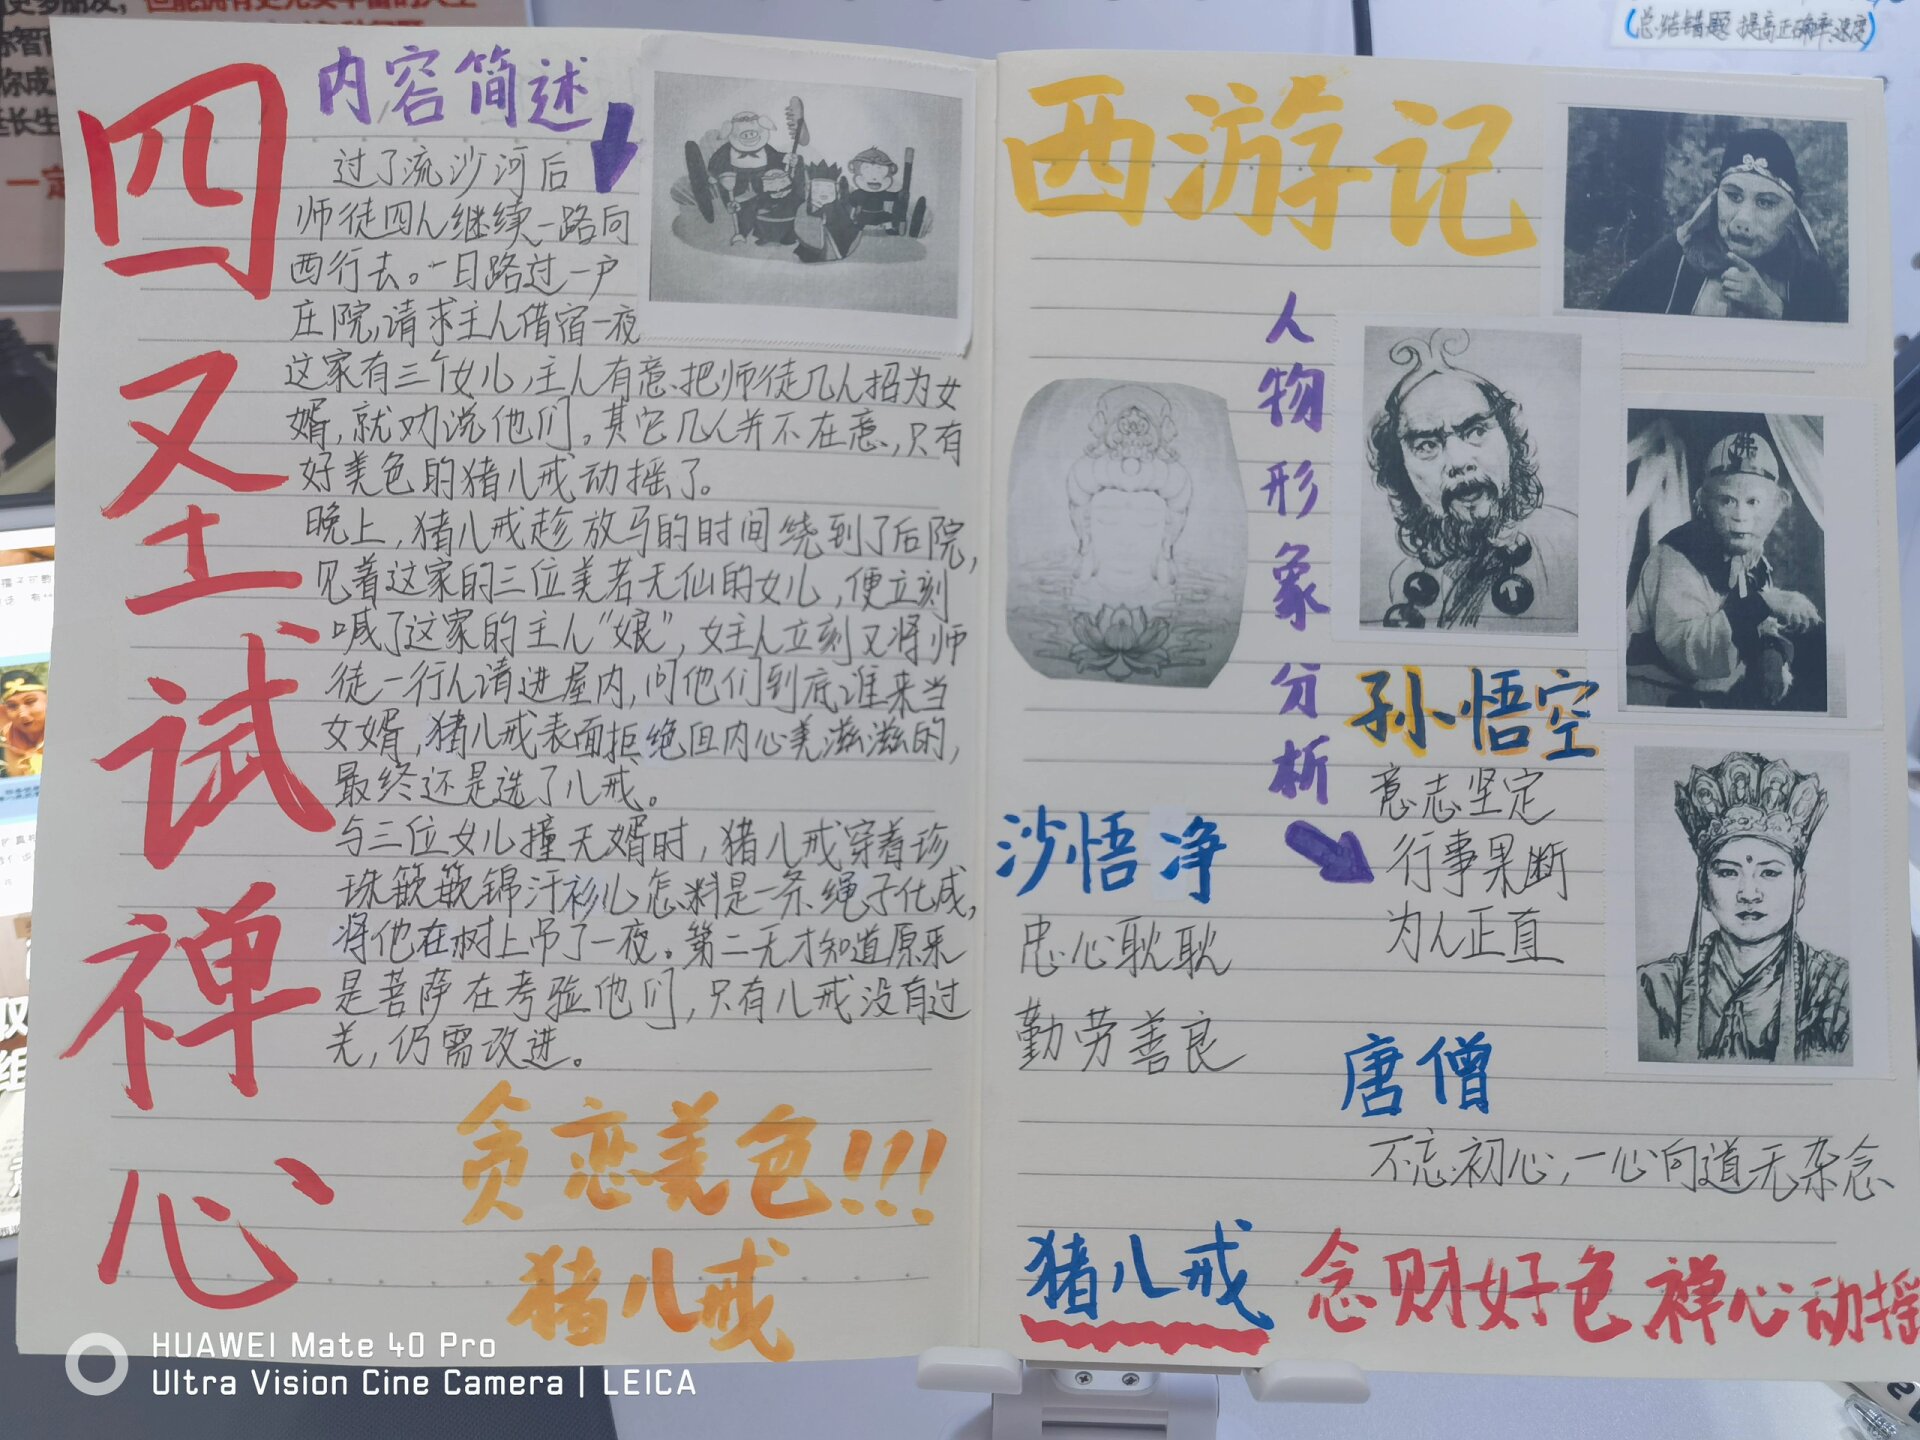 四圣试禅心
内容简述
过了流沙河后
师徒四人继续一路向
西行去。一日路过一户
庄院,请求主人借宿一夜
这家有三个女儿,主人有意把师徒几人招为女
婿,就劝说他们。其它几人并不在意,只有
好美色的猪八戒动摇了。
晚上,猪八戒趁放马的时间绕到了后院,
见着这家的三位美若天仙的女儿,便立刻
喊了这家的主人“娘”,女主人立刻又将师
徒一行人请进屋内,问他们到底谁来当
女婿,猪八戒表面拒绝但内心美滋滋的,
最终还是选了八戒。
与三位女儿撞天婿时,猪八戒穿着珍
珠篏篏锦汗衫儿怎料是一条绳子化成,
将他在树上吊了一夜。第二天才知道原来
是菩萨在考验他们,只有八戒没有过
关,仍需改进。
贪恋美色!!!
猪八戒
西游记
人物形象分析
孙悟空
意志坚定
行事果断
为人正直
沙悟净
忠心耿耿
勤劳善良
唐僧
不忘初心,一心向道无杂念
猪八戒 念财好色 禅心动摇
佛
(总结错题 提高正确率速度)
一定
HUAWEI Mate 40 Pro
Ultra Vision Cine Camera | LEICA